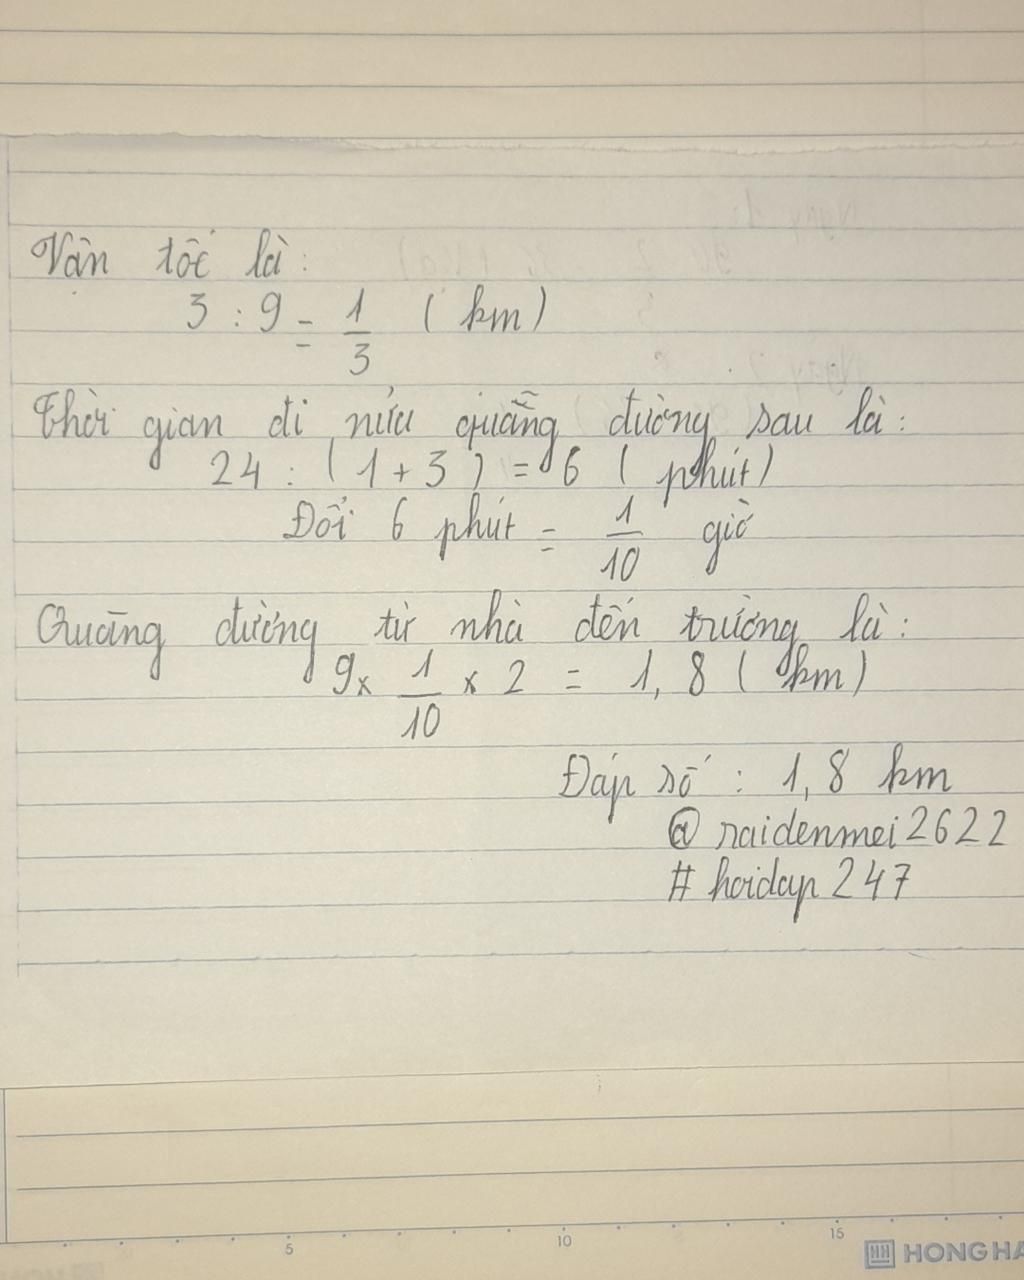 Vận tốc là:
3 : 9 = 1/3 (km)
Thời gian đi nửa quãng đường sau là:
24 : (1 + 3) = 6 (phút)
Đổi 6 phút = 1/10 giờ
Quãng đường từ nhà đến trường là:
9 x 1/10 x 2 = 1,8 (km)
Đáp số : 1,8 km
@ raidenmei2622
# hoidap 247
5 10 15
HH HONG HA